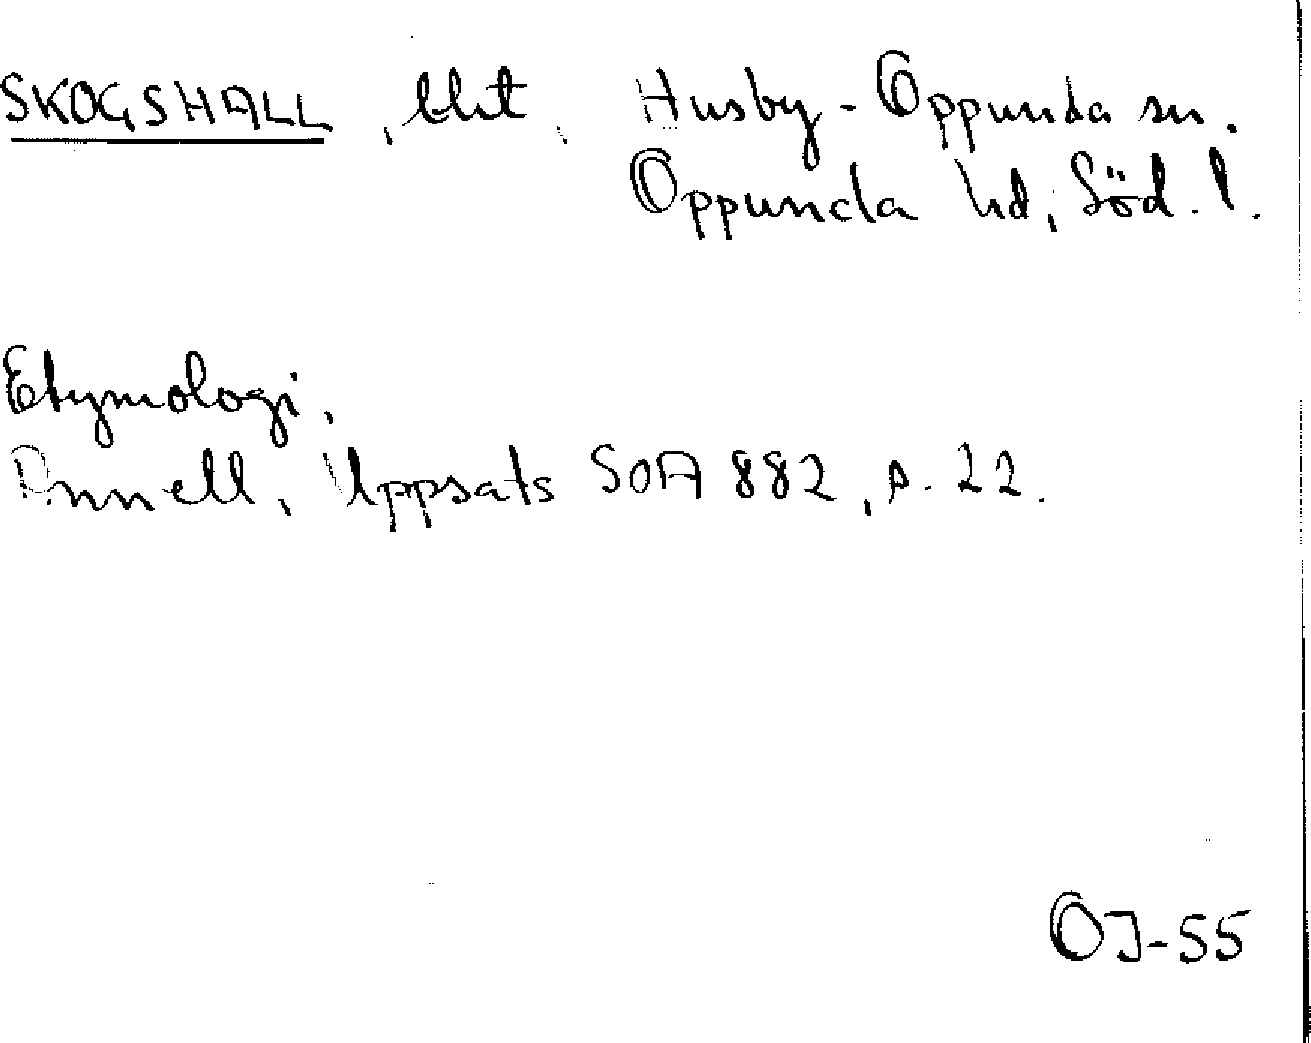 SKOGSHALL, tht, Husby-Oppunda sn.
Oppunda hd, Söd. l.
Etymologi.
Uppsats SOA 882, s. 22.
OJ-55